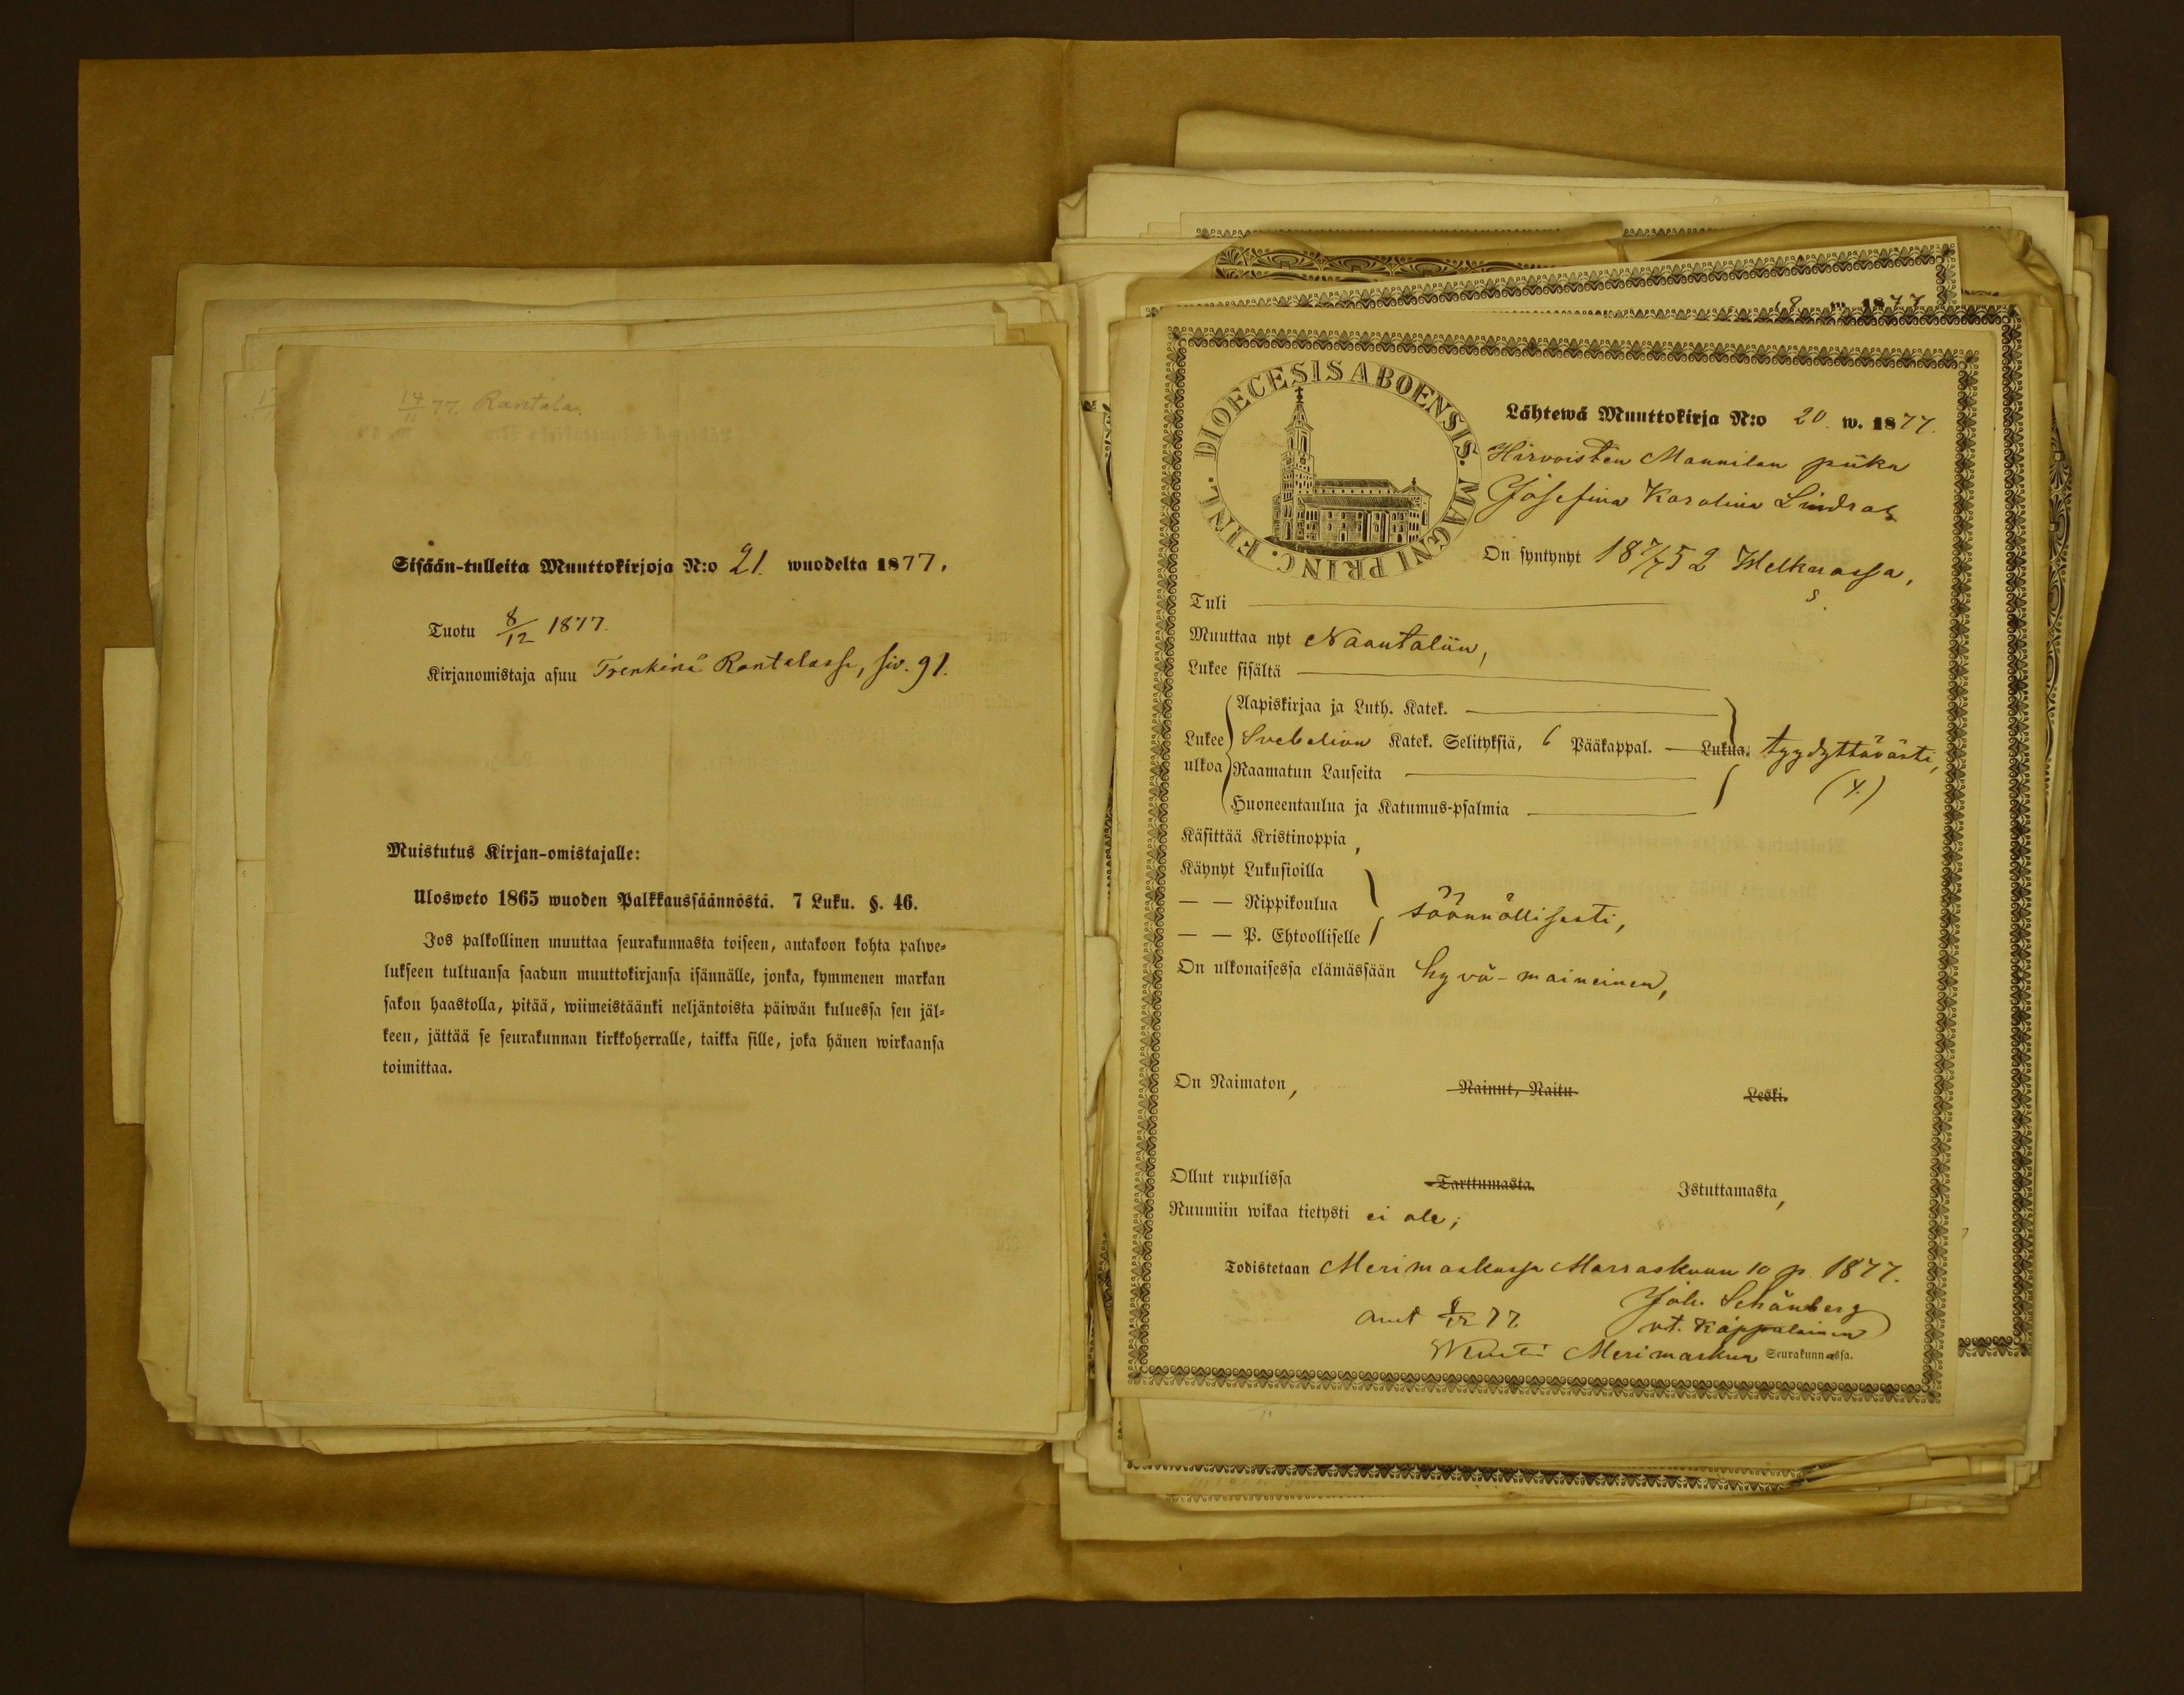 14/11 77. Rantala.
Sisään-tulleita Muuttokirjoja N:o 21. wuodelta 1877.
Tuotu 8/12 1877.
Kirjanomistaja asuu Rantalassa, siv. 91.
Muistutus Kirjan-omistajalle:
Ulosweto 1865 wuoden Palkkaussäännöstä. 7 Luku. §. 46.
Jos palkollinen muuttaa seurakunnasta toiseen, antakoon kohta palwe-
lukseen tultuansa saadun muuttokirjansa isännälle, jonka, kymmenen markan
sakon haastolla, pitää, wiimeistäänki neljäntoista päiwän kuluessa sen jäl-
keen, jättää se seurakunnan kirkkoherralle, taikka sille, joka hänen wirkaansa
toimittaa.
18 1877
DIOECESIS ABOENSIS. MAGNI PRINC. FINL.
Lähtewä Muuttokirja N:o 20. w. 1877.
Hirvoisten Mannilan piika
Josefina Karolina
On syntynyt 18 7/7 52
Tuli
Muuttaa nyt Naantaliin,
Lukee sisältä
Aapiskirjaa ja Luth. Katek.
Lukee Svebelion Katek. Selityksiä, 6 Pääkappal. Lukua. tyydyttävästi,
ulkoa Raamatun Lauseita (4.)
Huoneentaulua ja Katumus-psalmia
Käsittää Kristinoppia,
Käynyt Lukusioilla
— — Rippikoulua säännöllisesti,
— — P. Ehtoolliselle
On ulkonaisessa elämässään hyvä-maineinen,
On Naimaton, Nainut, Naitu Leski.
Ollut rupulissa Tarttumasta Istuttamasta,
Ruumiin wikaa tietysti ei ole;
Todistetaan Merimaskussa Marraskuun 10 p. 1877.
Joh. Schönberg
Anmt 8/12 77 vt. Kappalainen
Merimaskun Seurakunnassa.